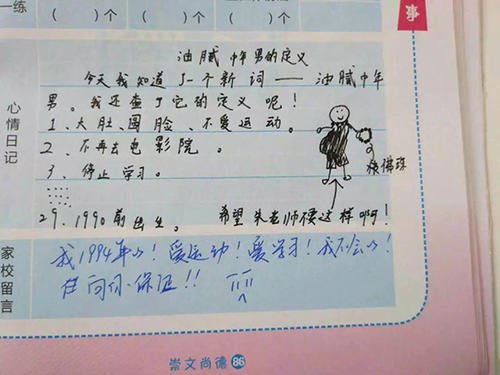 一练
( )个 ( )个 ( )个
事
心情日记
油腻中年男的定义
今天我知道了一个新词——油腻中年
男。我还查了它的定义呢!
1、大肚、圆脸、不爱运动。
2、不再去电影院。
3、停止学习。
29、1990前出生。 希望朱老师不要这样啊!
家校留言
我1994年的!爱运动!爱学习!我不会的!
朱向你保证!!
崇文尚德 86